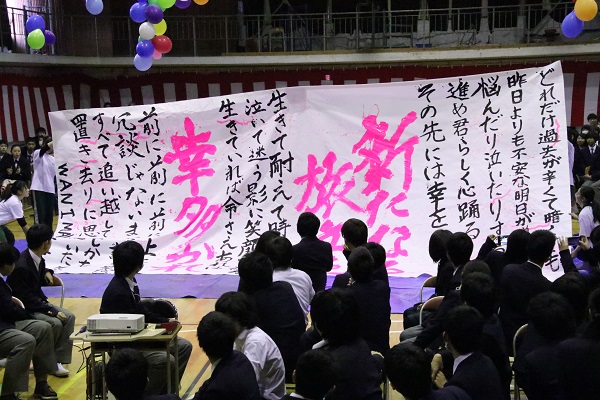 どれだけ過去が辛くて暗く
昨日よりも不安な明日が
悩んだり泣いたりす
進め君らしく心踊る
その先には幸を
新たな
旅
生きて耐えて時
泣いて迷う影に笑
生きていれば命さえ
幸多か
前に前に前
冗談じゃないま
すべて追い越して
置き去りに
WANIMA